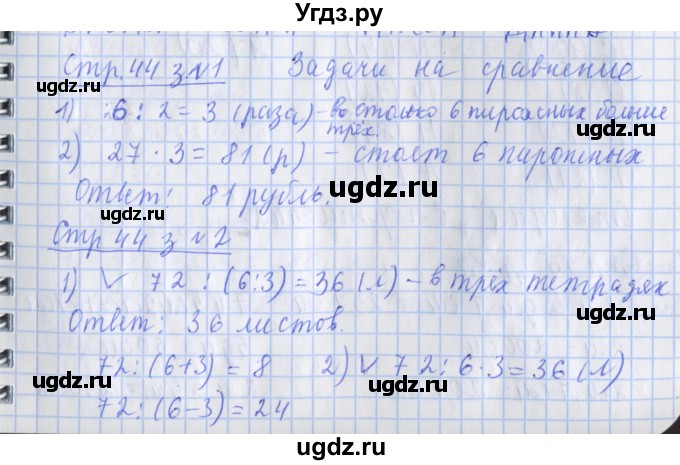 Угдз.ру
Стр. 44 з №1 Задачи на сравнение
1) 6 : 2 = 3 (раза) - во столько 6 пирожных больше
трёх.
2) 27 · 3 = 81 (р) - стоят 6 пирожных
Ответ: 81 рубль.
Стр 44 з №2
1) V 72 : (6:3) = 36 (л) - в трёх тетрадях
Ответ: 36 листов.
72 : (6+3) = 8 2) V 72 : 6 · 3 = 36 (л)
72 : (6-3) = 24
ugdz.ru
ugdz.ru
ugdz.ru
ugdz.ru
ugdz.ru
ugdz.ru
ugdz.ru
ugdz.ru
ugdz.ru
ugdz.ru
ugdz.ru
ugdz.ru
ugdz.ru